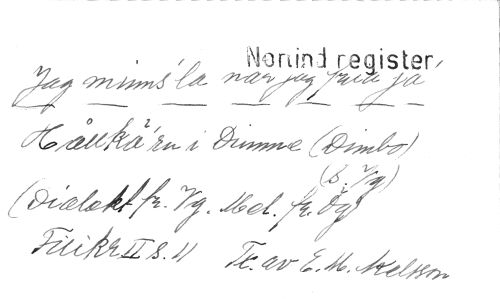 Norrind register.
Jag minns'la når jag fria ja'
Hållkä'rn i Dimme (Dimbo)
(S. Vg)
(Dialekt fr. Vg. Mel. fr. Ög)
Filikr II s. 11 Tr. av E. M. Nelson